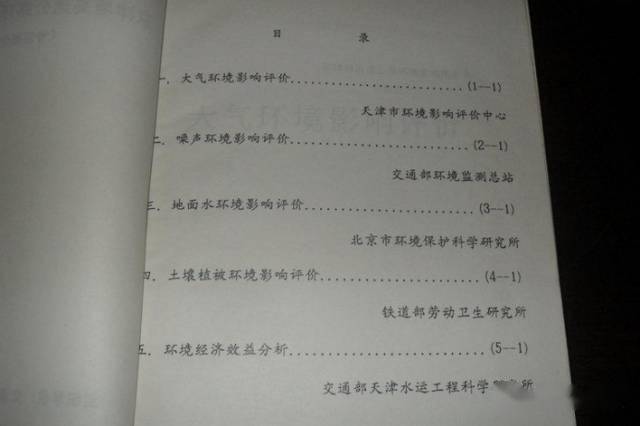 目 录
一. 大气环境影响评价........................(1--1)
天津市环境影响评价中心
二. 噪声环境影响评价........................(2--1)
交通部环境监测总站
三. 地面水环境影响评价........................(3--1)
北京市环境保护科学研究所
四. 土壤植被环境影响评价........................(4--1)
铁道部劳动卫生研究所
五. 环境经济效益分析........................(5--1)
交通部天津水运工程科学研究所